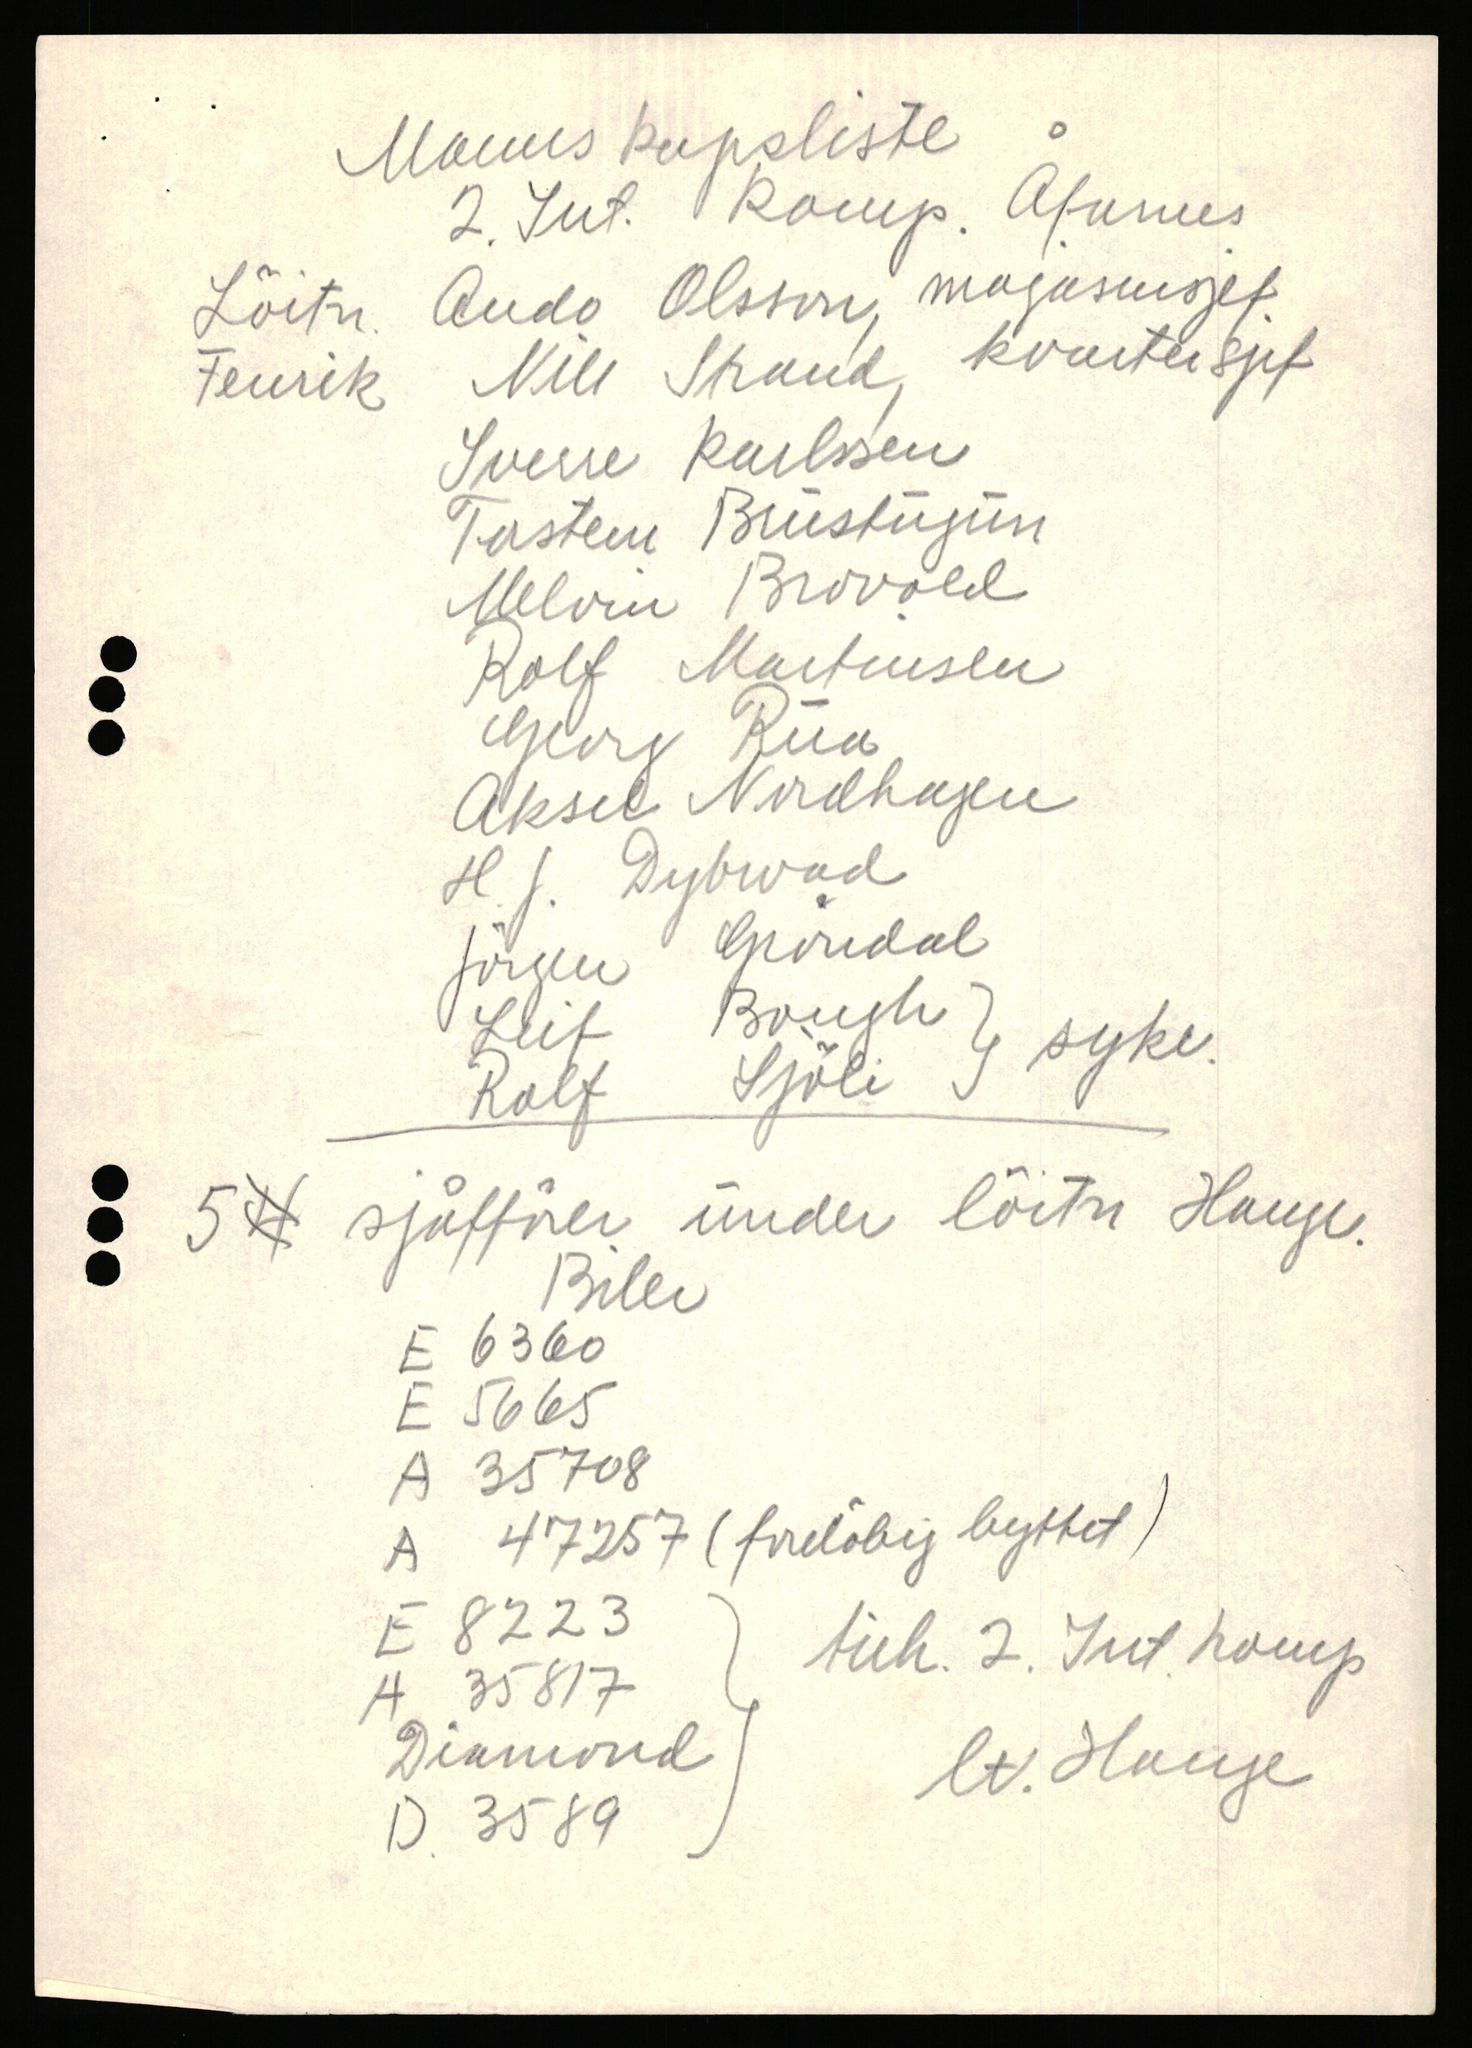 Mannskapsliste
2. Int. komp. Åfarnes
Löitn. Ando Olsson, magasinsjef
Fenrik Nils Strand, kvartersjef
Sverre Karlssen
Tosten Brustugun
Melvin Brovold
Rolf Martinsen
Georg Rua
Aksel Nordhagen
H. J. Dybwad
Jörgen Gröndal
Leif Bough } syke.
Rolf Sjöli
5 sjåfförer under löitn Hauge.
Biler
E 6360
E 5665
A 35708
A 47257 (forelöbig byttet)
E 8223 } tilh. 2. Int. komp
A 35817
Diamond lt. Hauge
D. 3589